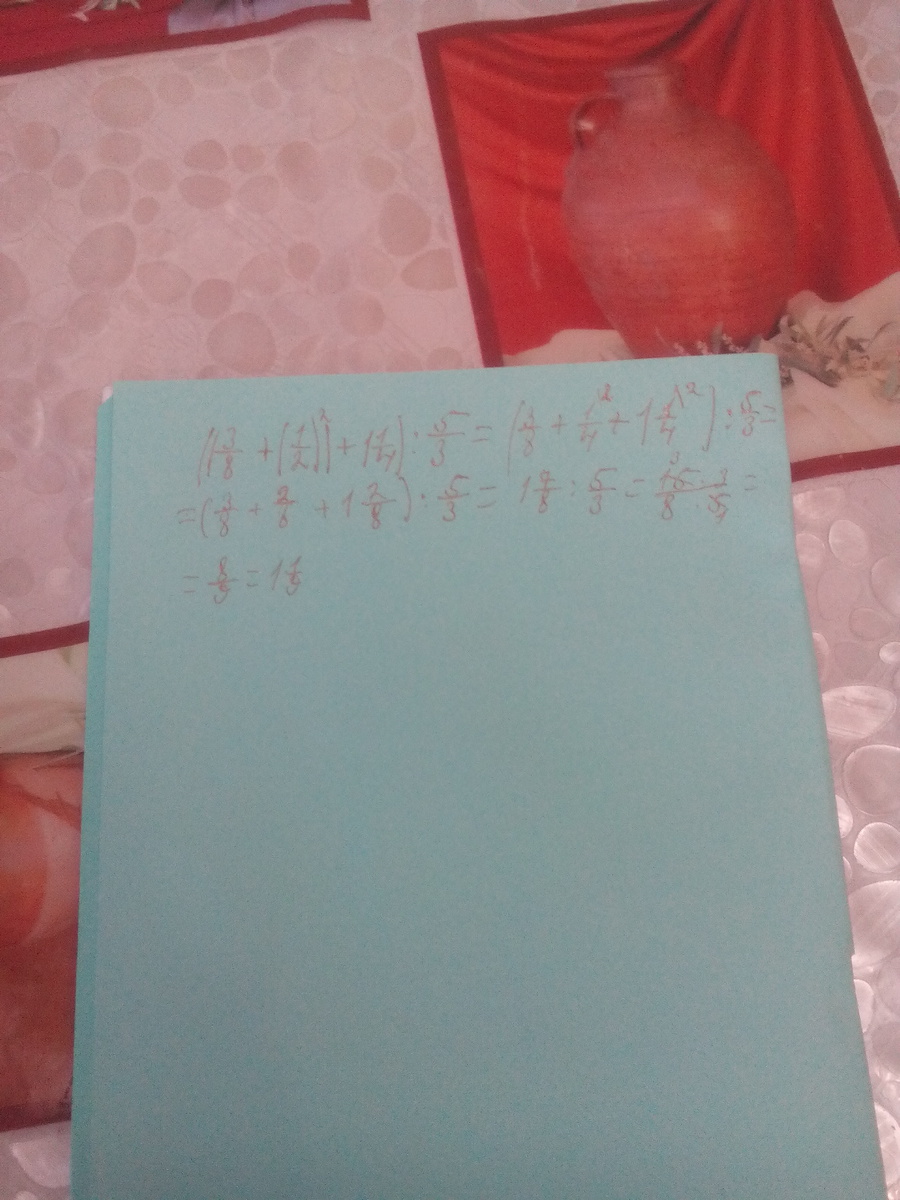 ((3/8 + (1/2)²) + 1 1/4) : 5/3 = (3/8 + 1/4 + 1 1/4) : 5/3 =
= (3/8 + 2/8 + 1 2/8) : 5/3 = 1 7/8 : 5/3 = 15 · 3 / 8 · 5 =
= 8/9 = 1 1/9